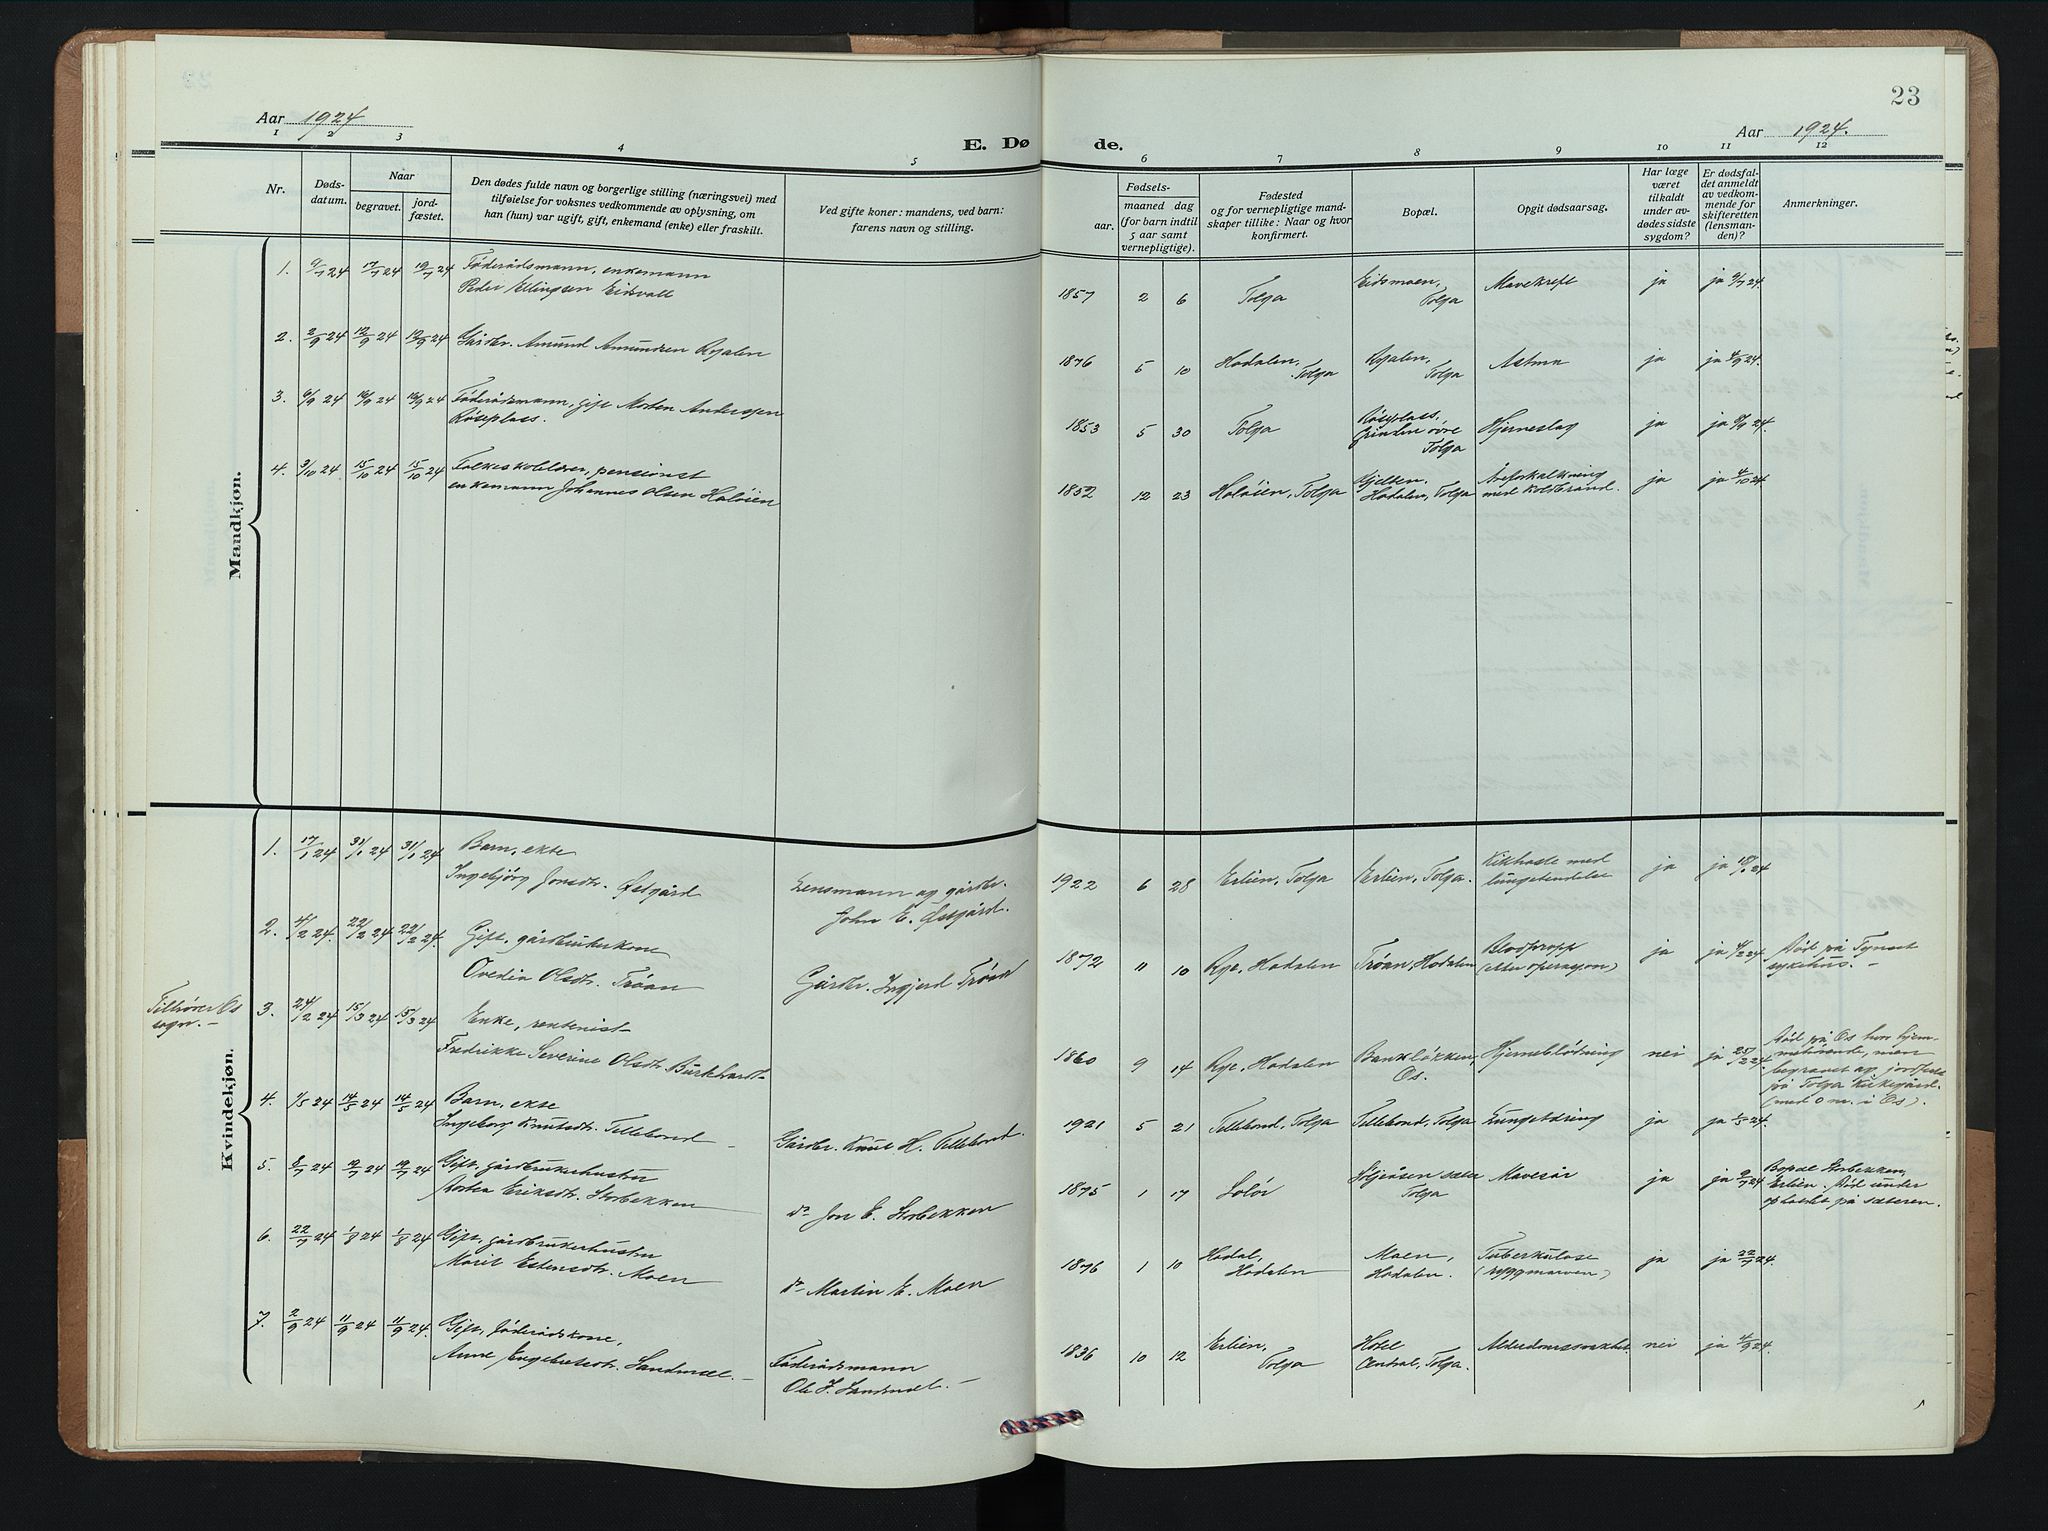 23
Aar 1924
Aar 1924.
E. Dø
de.
1 2 3 4 5 6 7 8 9 10 11 12
Nr.
Døds-
datum.
Naar
begravet.
jord-
fæstet.
Den dødes fulde navn og borgerlige stilling (næringsvei) med
tilføielse for voksnes vedkommende av oplysning, om
han (hun) var ugift, gift, enkemand (enke) eller fraskilt.
Ved gifte koner: mandens, ved barn:
farens navn og stilling.
Fødsels-
aar.
maaned dag
(for barn indtil
5 aar samt
vernepligtige).
Fødested
og for vernepligtige mand-
skaper tillike: Naar og hvor
konfirmert.
Bopæl.
Opgit dødsaarsag.
Har læge
været
tilkaldt
under av-
dødes sidste
sygdom?
Er dødsfal-
det anmeldt
av vedkom-
mende for
skifteretten
(lensman-
den)?
Anmerkninger.
Mandkjøn.
1. 9/7 24 17/7 24 19/7 24 Föderådsmann, enkemann
Peder Ellingsen Eidsvall
1857 2 6 Tolga Eidsmoen, Tolga Mavekreft ja ja 9/7 24.
2. 2/9 24 12/9 24 12/9 24 Gårdbr. Amund Amundsen Røsalen
1876 5 10 Hodalen, Tolga Tolga Astma ja ja 4/9 24.
3. 6/9 24 16/9 24 16/9 24 Föderådsmann, gift Morten Anderssen
Röseplass.
1853 5 30 Tolga Röseplass, øvre Tolga Hjerneslag ja ja 8/9 24.
4. 3/10 24 15/10 24 15/10 24 Folkeskolelærer, pensionist
enkemann Johannes Olsen Holöien
1852 12 23 Holöien, Tolga Kjelten, Hodalen, Tolga Åreforkalkning
med koldbrand. ja ja 4/10 24.
Kvindekjøn.
1. 17/1 24 31/1 24 31/1 24 Barn, ekte
Ingebjörg Jonsdtr. Østgård
Lensmann og gårdbr.
John E. Østgård.
1922 6 28 Erlien, Tolga Erlien, Tolga. Kikhoste med
lungebetendelse ja ja 18/1 24
2. 4/2 24. 22/2 24 22/2 24. Gift, gårdbrukerkone
Ovedia Olsdtr. Tröan
Gårdbr. Ingjerd Tröan
1872 11 10 Rye, Hodalen Tröan, Hodalen Blodpropp
(etter operasjon) ja ja 4/2 24. Död på Tynset
sykehus. -
Tilhörer Os
sogn. -
3. 24/2 24 15/3 24 15/3 24 Enke, rentenist
Fredrikke Severine Olsdtr. Burkhardt
1860 9 14 Rye, Hodalen Bankløkken,
Os. Hjerneblödning nei ja 25/2 24. Död på Os hvor hjem-
mehörende, men
begravet og jordfestet
på Tolga kirkegård.
(med o nr. i Os).
4. 1/5 24 14/5 24 14/5 24 Barn, ekte
Ingeborg Knutsdtr. Tellebond -
Gårdbr. Knut H. Tellebond.
1921 5 21 Tellebond, Tolga Tellebond, Tolga Lungetæring ja ja 1/5 24.
5. 8/7 24 19/7 24 19/7 24 Gift, gårdbrukerhustru
Eriksdtr. Storbekken
do Jon E. Storbekken
1875 1 17 Solör sæter
Tolga Mavesår ja ja 9/7 24 Bopæl Storbekken,
Erlien. Död under
opholdet på sæteren.
6. 22/7 24 1/8 24 1/8 24 Gift, gårdbrukerhustru
Marit Estensdtr. Moen
do Martin E. Moen
1876 1 10 Hodal,
Hodalen Moen,
Hodalen. Tuberkulose
(ryggmarven) ja ja 22/7 24.
7. 2/9 24 11/9 24 11/9 24. Gift, föderådskone,
Anne Engebretsdtr. Sandmæl. -
Föderådsmann
Ole J. Sandmæl. -
1836 10 12 Erlien,
Tolga Hotel
Central, Tolga. Alderdomssvakhet. nei ja 4/9 24.